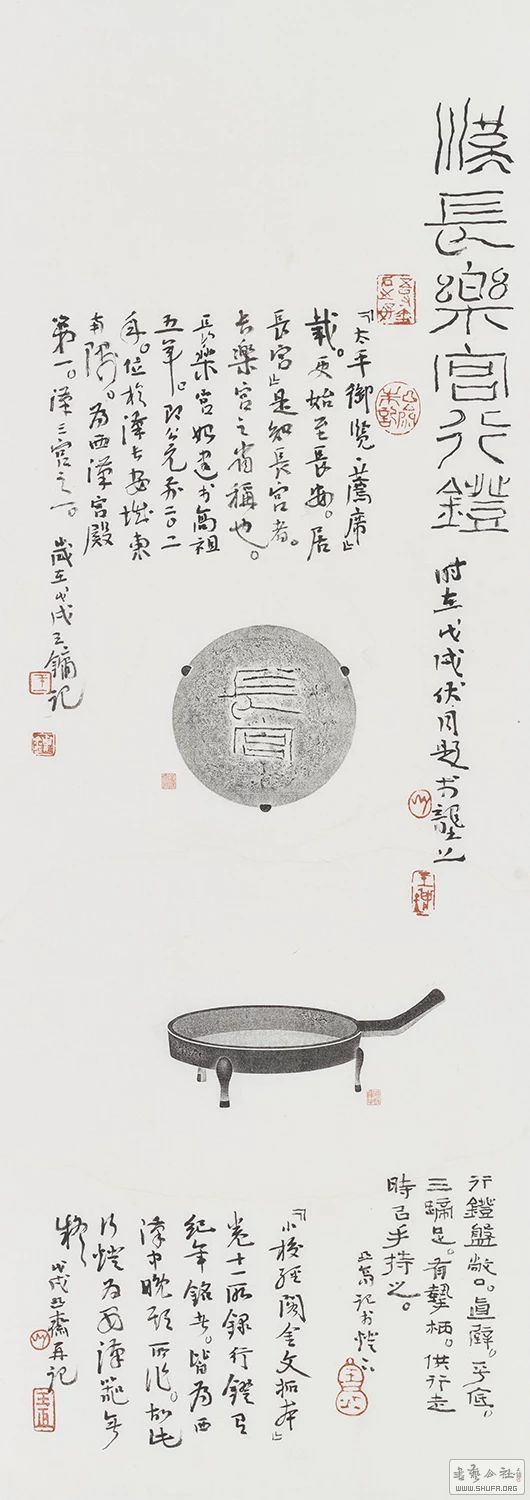 漢長樂宮行鐙
時在戊戌伏月題於
『太平御覽·薦席』
載。更始至長安。居
長宮』是知長宮者。
長樂宮之省稱也。
長樂宮始建於高祖
五年。即公元前二〇二
年。位於漢長安城東
南隅。為西漢宮殿
第一。漢三宮之一。
歲在戊戌三鏞記
長宮
行鐙盤敞口。直壁。平底。
三蹄足。有執柄。供行走
時以手持之。
『小校經閣金文拓本』
卷十一所錄行鐙有
紀年銘者。皆為西
漢中晚期所作。故此
行燈為西漢器無
疑
戊戌亞齋再記
WWW.SHUFA.ORG